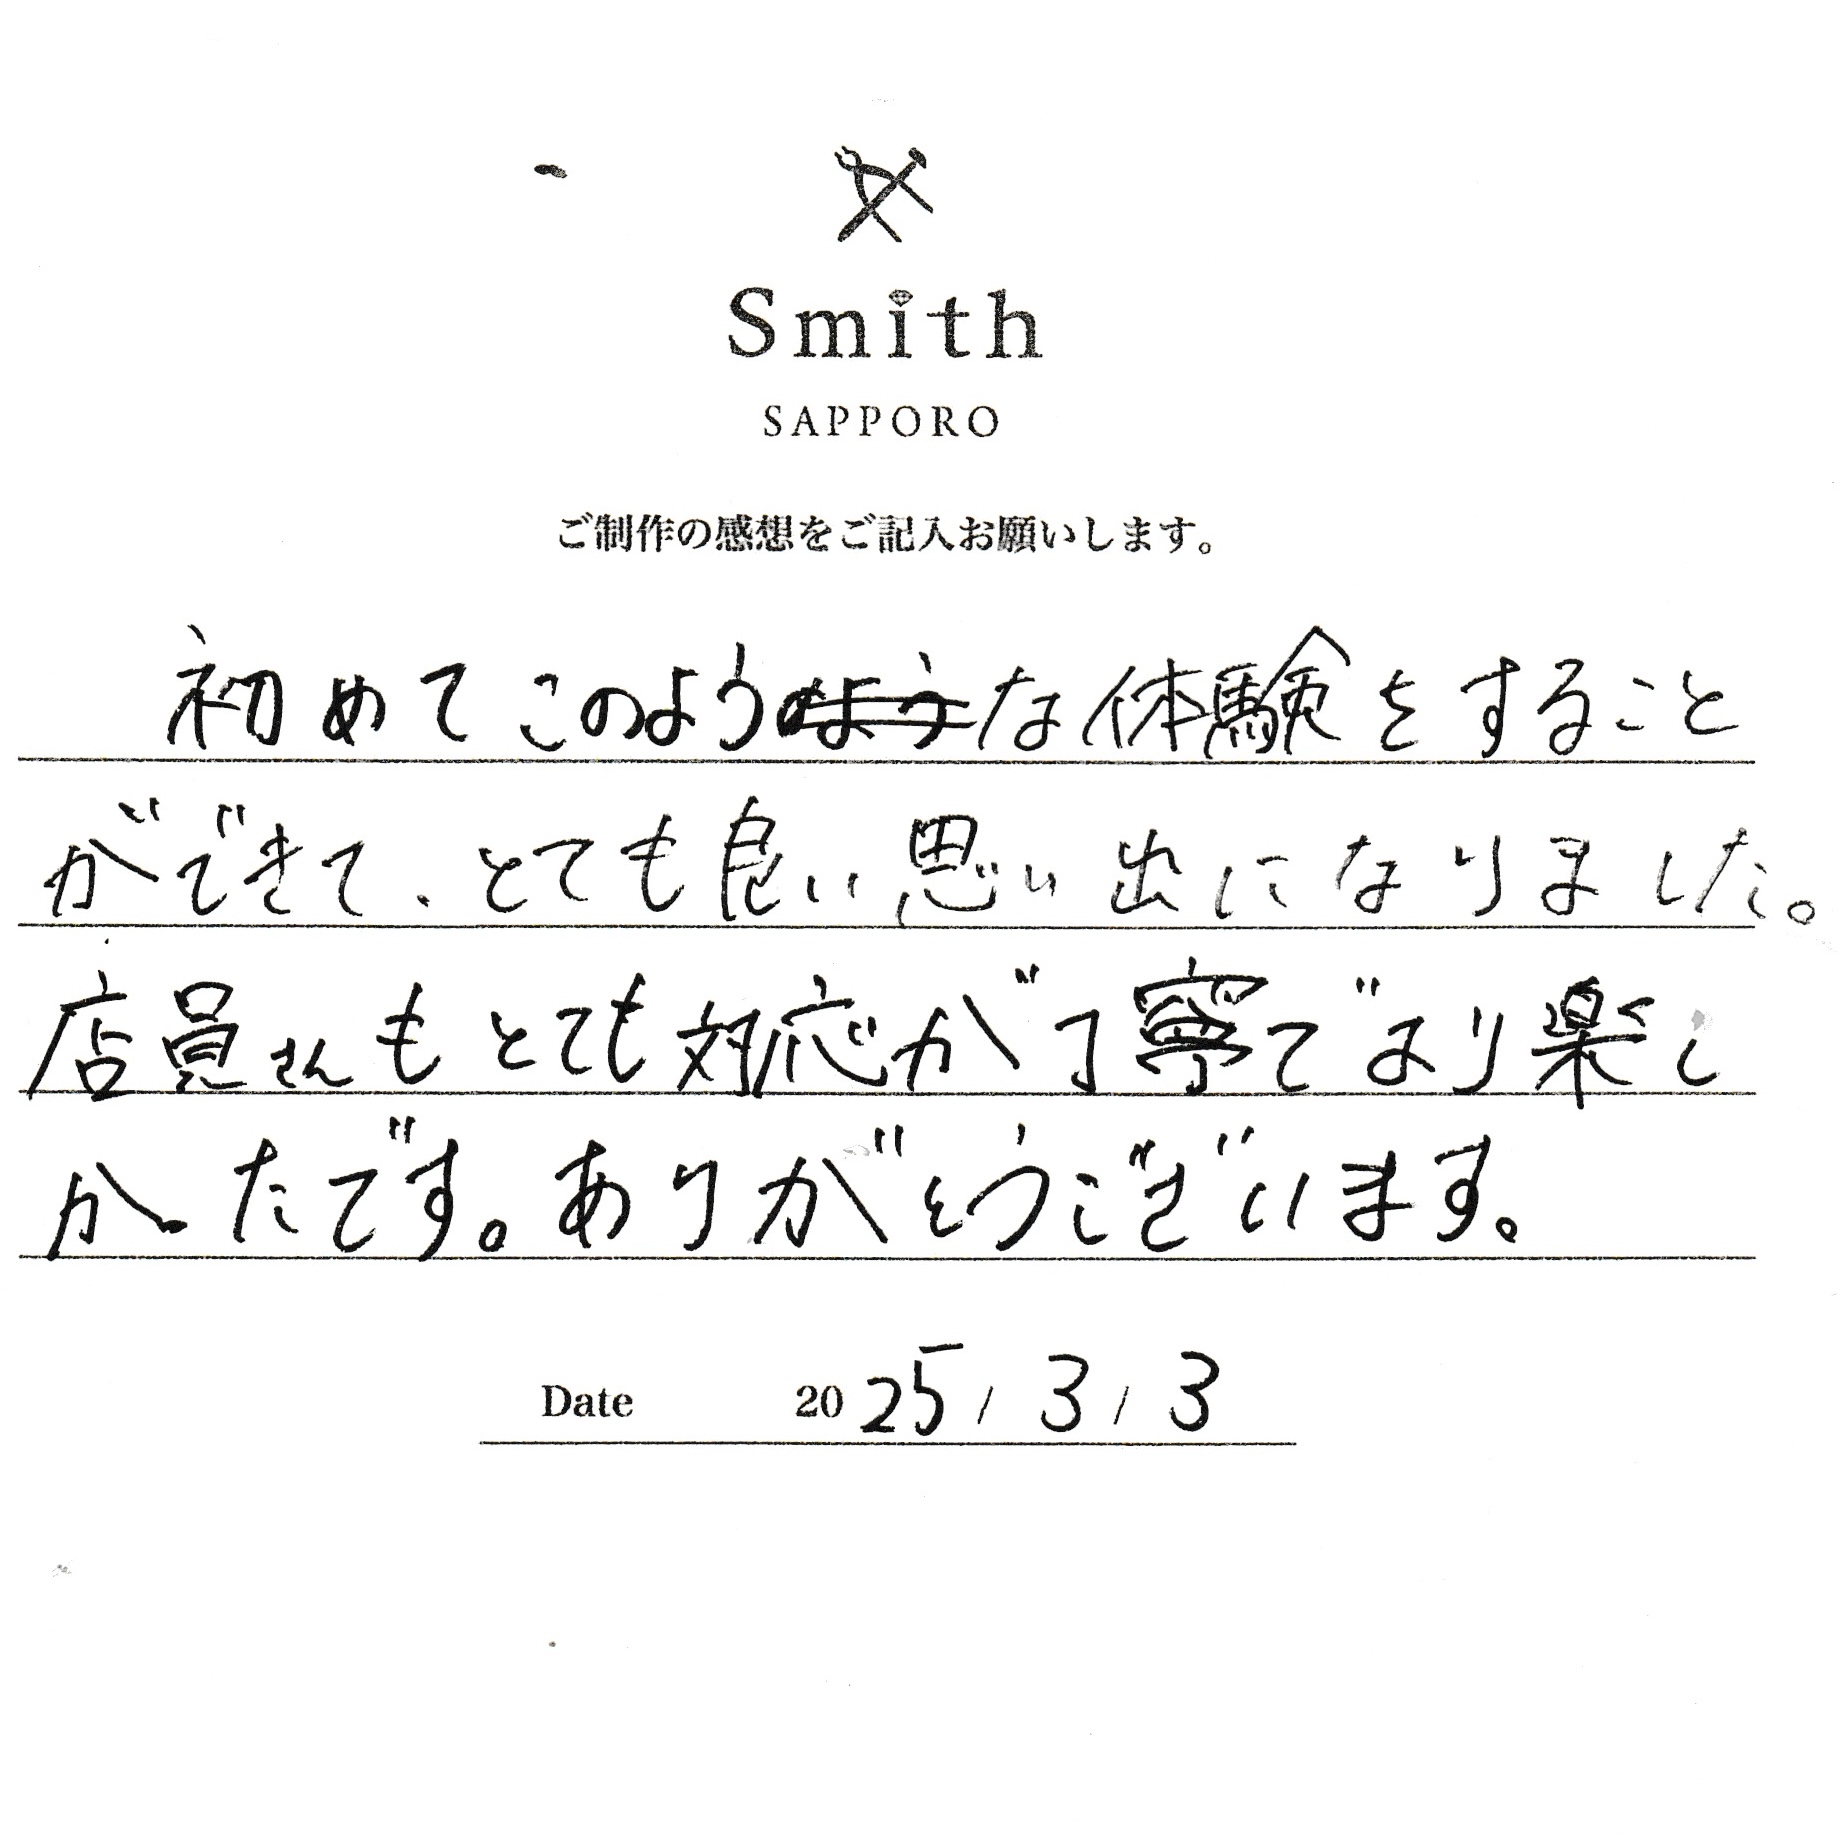 Smith
SAPPORO
ご制作の感想をご記入お願いします。
初めてこのようような体験をすること
ができて、とても良い思い出になりました。
店員さんもとても対応が丁寧でより楽し
かったです。ありがとうございます。
Date 2025/3/3